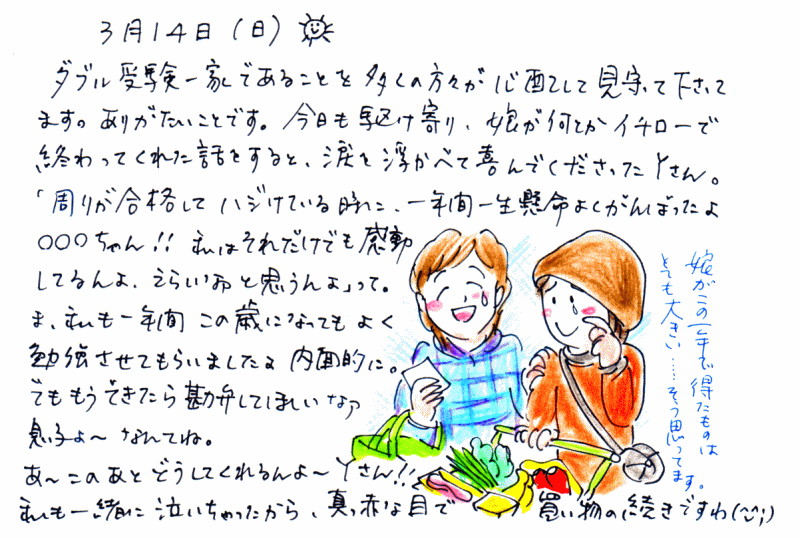 3月14日(日)
ダブル受験一家であることを多くの方々が心配して見守って下さって
ます。ありがたいことです。今日も駆け寄り、娘が何とかイチローで
終わってくれた話をすると、涙を浮かべて喜んでくださったYさん。
「周りが合格してハジけている時に、一年間一生懸命よくがんばったよ
○○○ちゃん!! 私はそれだけでも感動
してるんよ、えらいわと思うんよ」って。
ま、私も一年間この歳になってもよく
勉強させてもらいましたよ内面的に。
でももうできたら勘弁してほしいなァ
息子よ〜なんてね。
あ〜このあとどうしてくれるんよ〜Yさん!!
私も一緒に泣いちゃったから、真っ赤な目で買い物の続きですわ(^^;)
娘がこの一年で得たものは
とても大きい……そう思ってます。